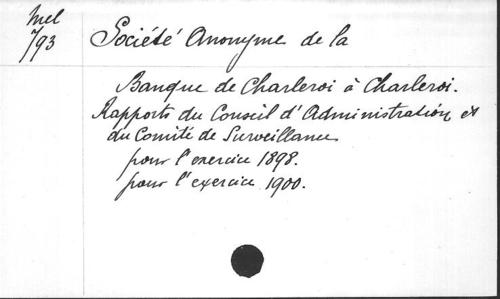 Mel
793
Société Anonyme de la
Banque de Charleroi à Charleroi.
Rapports du Conseil d'Administration et
du Comité de Surveillance
pour l'exercice 1898.
pour l'exercice 1900.